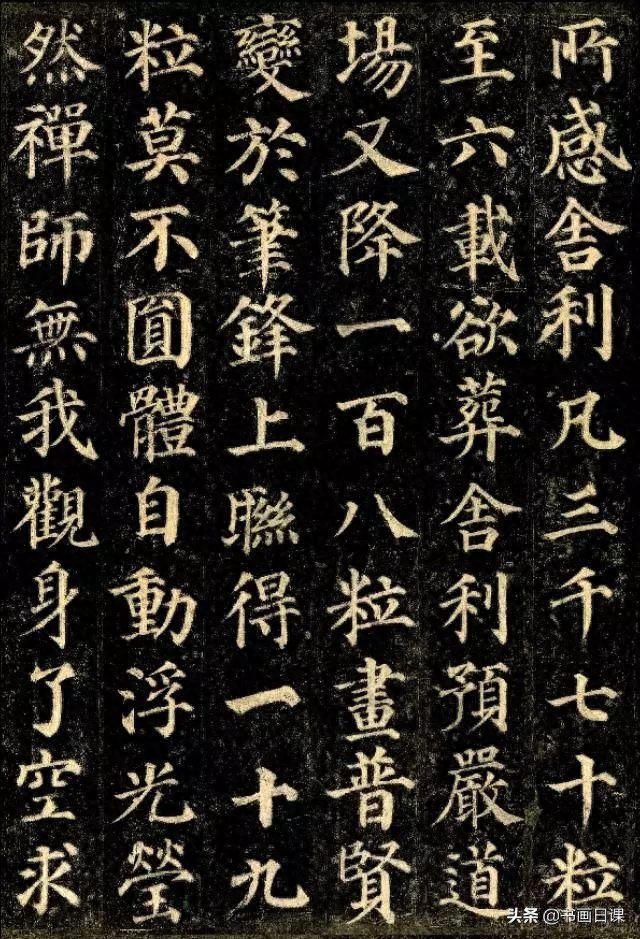 所感舍利凡三千七十粒
至六載欲葬舍利預嚴道
場又降一百八粒畫普賢
變於筆鋒上聯得一十九
粒莫不圓體自動浮光瑩
然禪師無我觀身了空求
头条 @书画日课